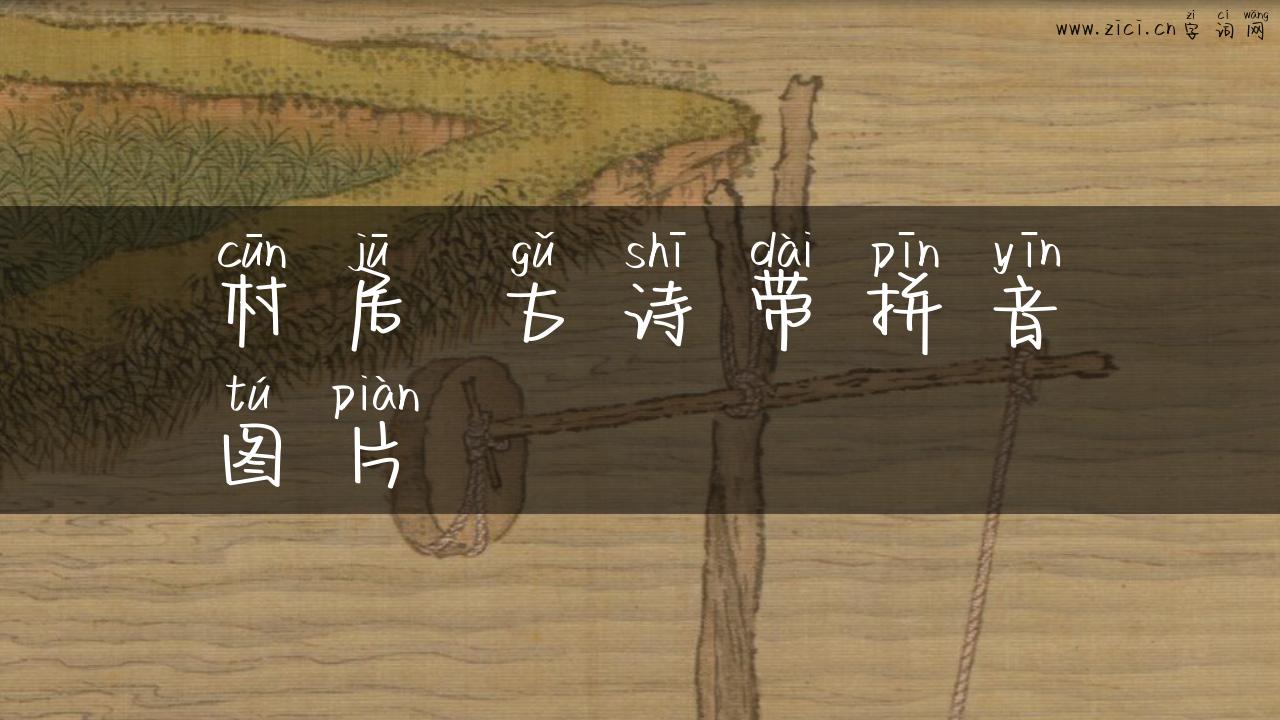 zì cí wǎng
www.zici.cn 字 词 网
cūn jū gǔ shī dài pīn yīn
村 居 古 诗 带 拼 音
tú piàn
图 片